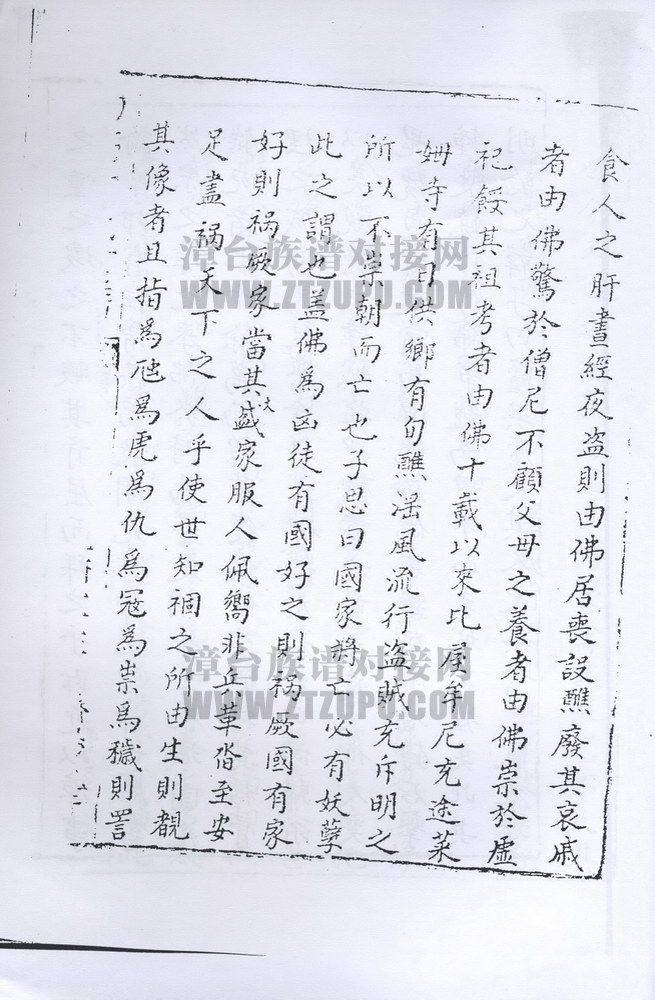 食人之肝晝經夜盗則由佛居喪設醮廢其哀戚
者由佛驚於僧尼不顧父母之養者由佛崇於虛
祀餒其祖考者由佛十載以來比屋牟尼充途菜
姆寺有日供鄉有旬醮滛風流行盗賊充斥明之
所以不崇朝而亡也子思曰國家將亡必有妖孽
此之謂也盖佛爲凶徒有國好之則祸厥國有家
好則祸厥家當其盛家服人佩嚮非兵革沓至安
足盡祸天下之人乎使世知禍之所由生則覩
其像者且指爲虺爲虎爲仇爲冦爲祟爲穢則詈
漳台族谱对接网
WWW.ZTZUPU.COM
漳台族谱对接网
WWW.ZTZUPU.COM